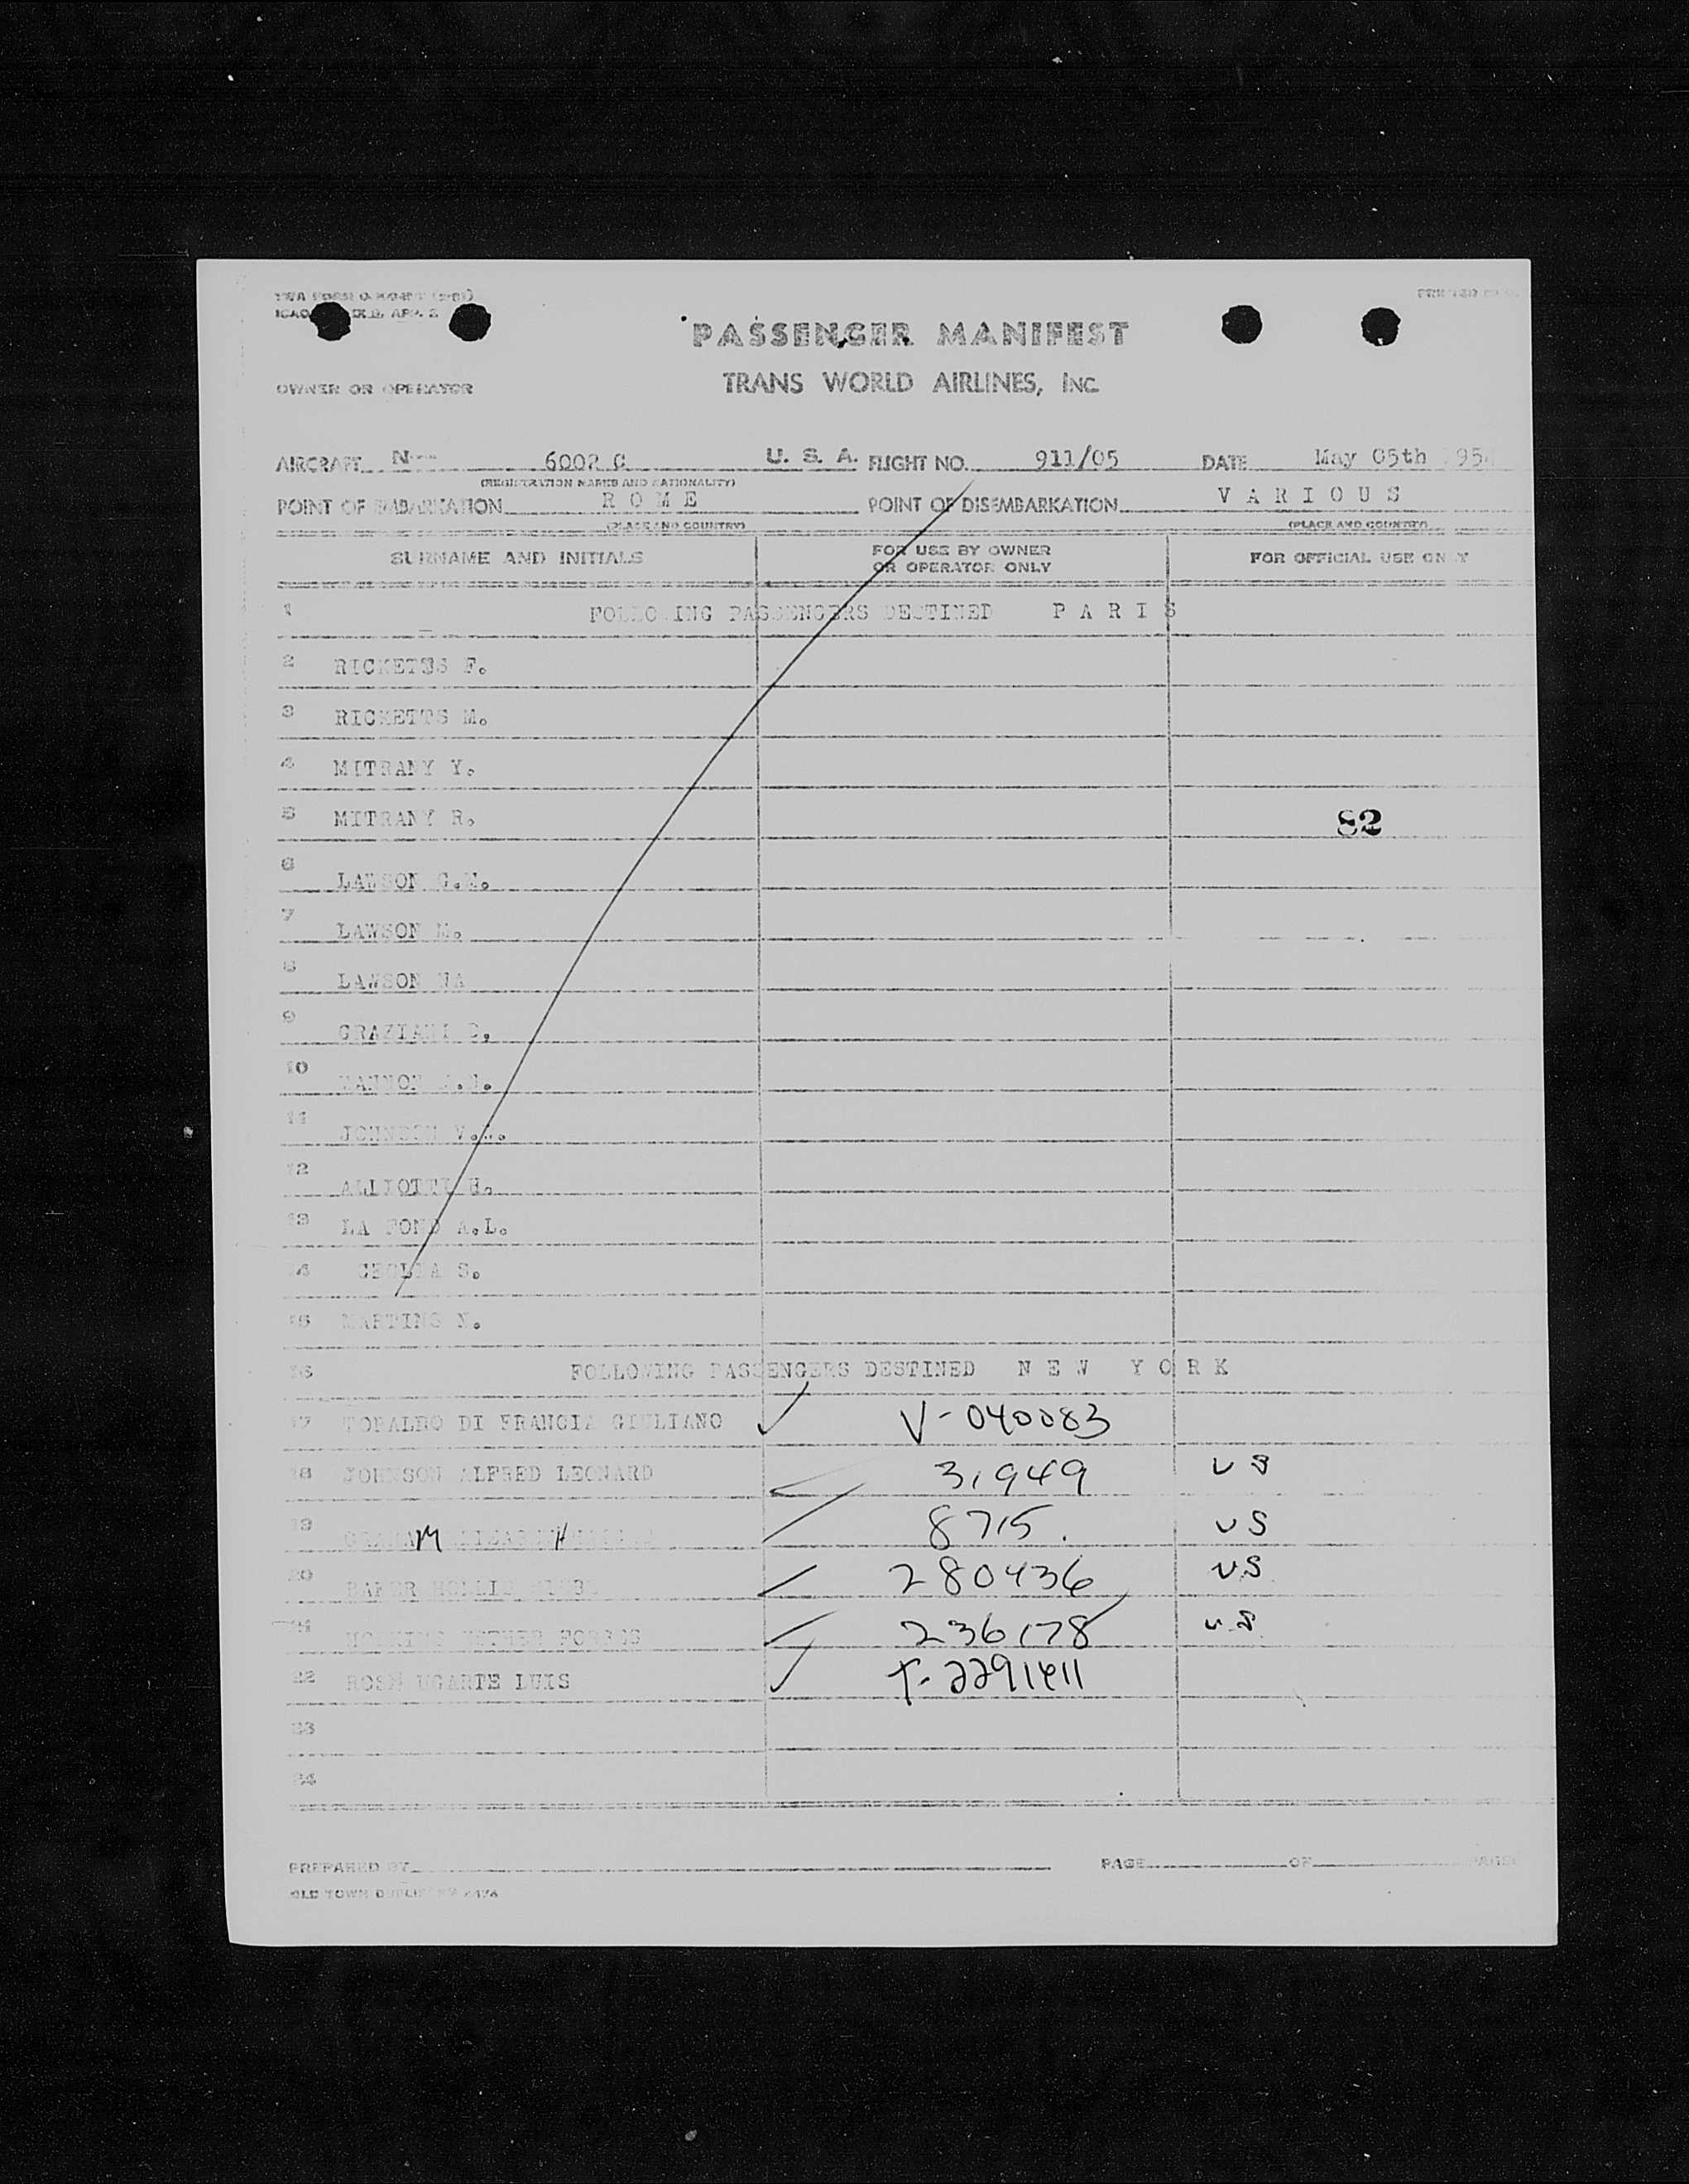 OWNER OR OPERATOR
PASSENGER MANIFEST
TRANS WORLD AIRLINES, INC.
AIRCRAFT N 6002 C U. S. A. FLIGHT NO. 911/05 DATE May 05th 195
(REGISTRATION MARKS AND NATIONALITY)
POINT OF EMBARKATION R O M E POINT OF DISEMBARKATION V A R I O U S
(PLACE AND COUNTRY) (PLACE AND COUNTRY)
SURNAME AND INITIALS FOR USE BY OWNER OR OPERATOR ONLY FOR OFFICIAL USE ONLY
1 FOLLOWING PASSENGERS DESTINED P A R I S
2 RICKETTS F.
3 RICKETTS M.
4 MITRANY Y.
5 MITRANY R. 82
6 LAWSON
7 LAWSON M.
8 LAWSON
9 GRAZIANI
10
11 JOHNSON
12 ALLIOTTI H.
13 LA FOND A.L.
14 S.
15 MARTINS N.
16 FOLLOWING PASSENGERS DESTINED N E W Y O R K
17 TORALDO DI FRANCIA GIULIANO V-040083
18 JOHNSON ALFRED LEONARD 31949 US
19 8715. US
20 BAKER 280436 US
21 236178 US
22 UGARTE LUIS T-2291411
23
24
PREPARED BY PAGE OF PAGES
OLD TOWN